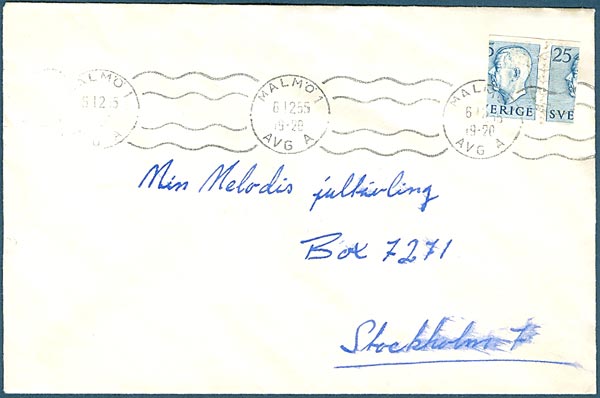 MALMÖ 1
6 12 5
VG A
MALMÖ 1
6 12 55
19-20
AVG A
MALMÖ 1
6 12 55
19-20
AVG A
5
ERIGE
25
SVE
Min Melodis jultävling
Box 7271
Stockholm 7